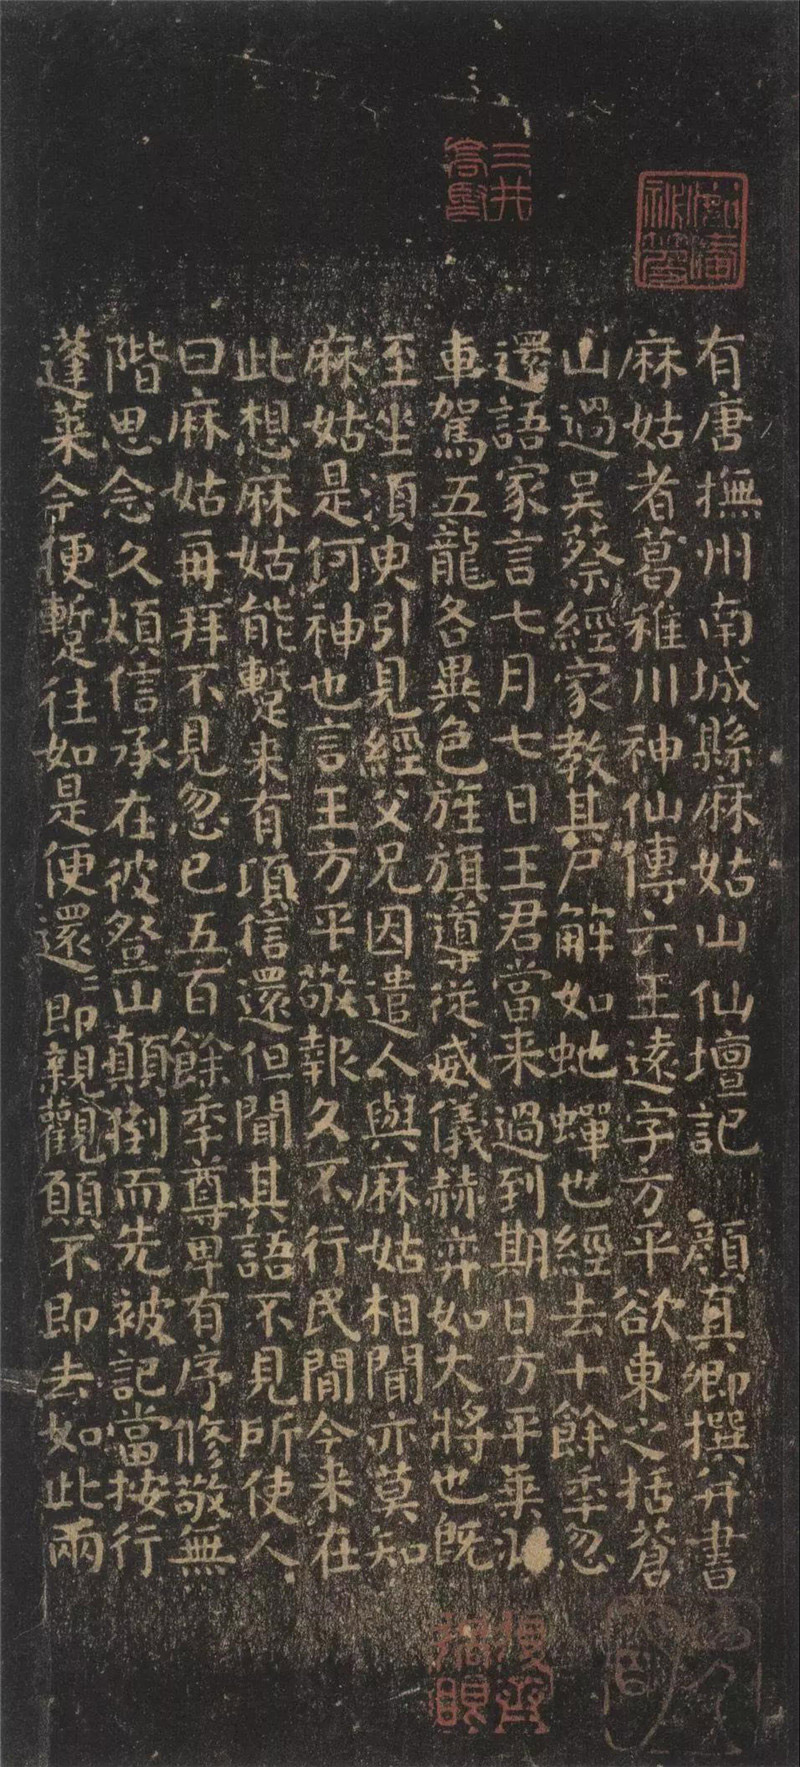 有唐撫州南城縣麻姑山仙壇記 顏真卿撰并書
麻姑者葛稚川神仙傳云王遠字方平欲東之括蒼
山過吳蔡經家教其尸解如虵蟬也經去十餘秊忽
還語家言七月七日王君當来過到期日方平乗
車駕五龍各異色旌旗導從威儀赫弈如大將也既
至坐須臾引見經父兄因遣人與麻姑相聞亦莫知
麻姑是何神也言王方平敬報久不行民間今来在
此想麻姑能蹔来有頃信還但聞其語不見所使人
曰麻姑再拜不見忽已五百餘秊尊卑有序修敬無
階思念久煩信承在彼登山顛倒而先被記當按行
蓬萊今便蹔往如是便還還即親觀願不即去如此兩
三井
高堅